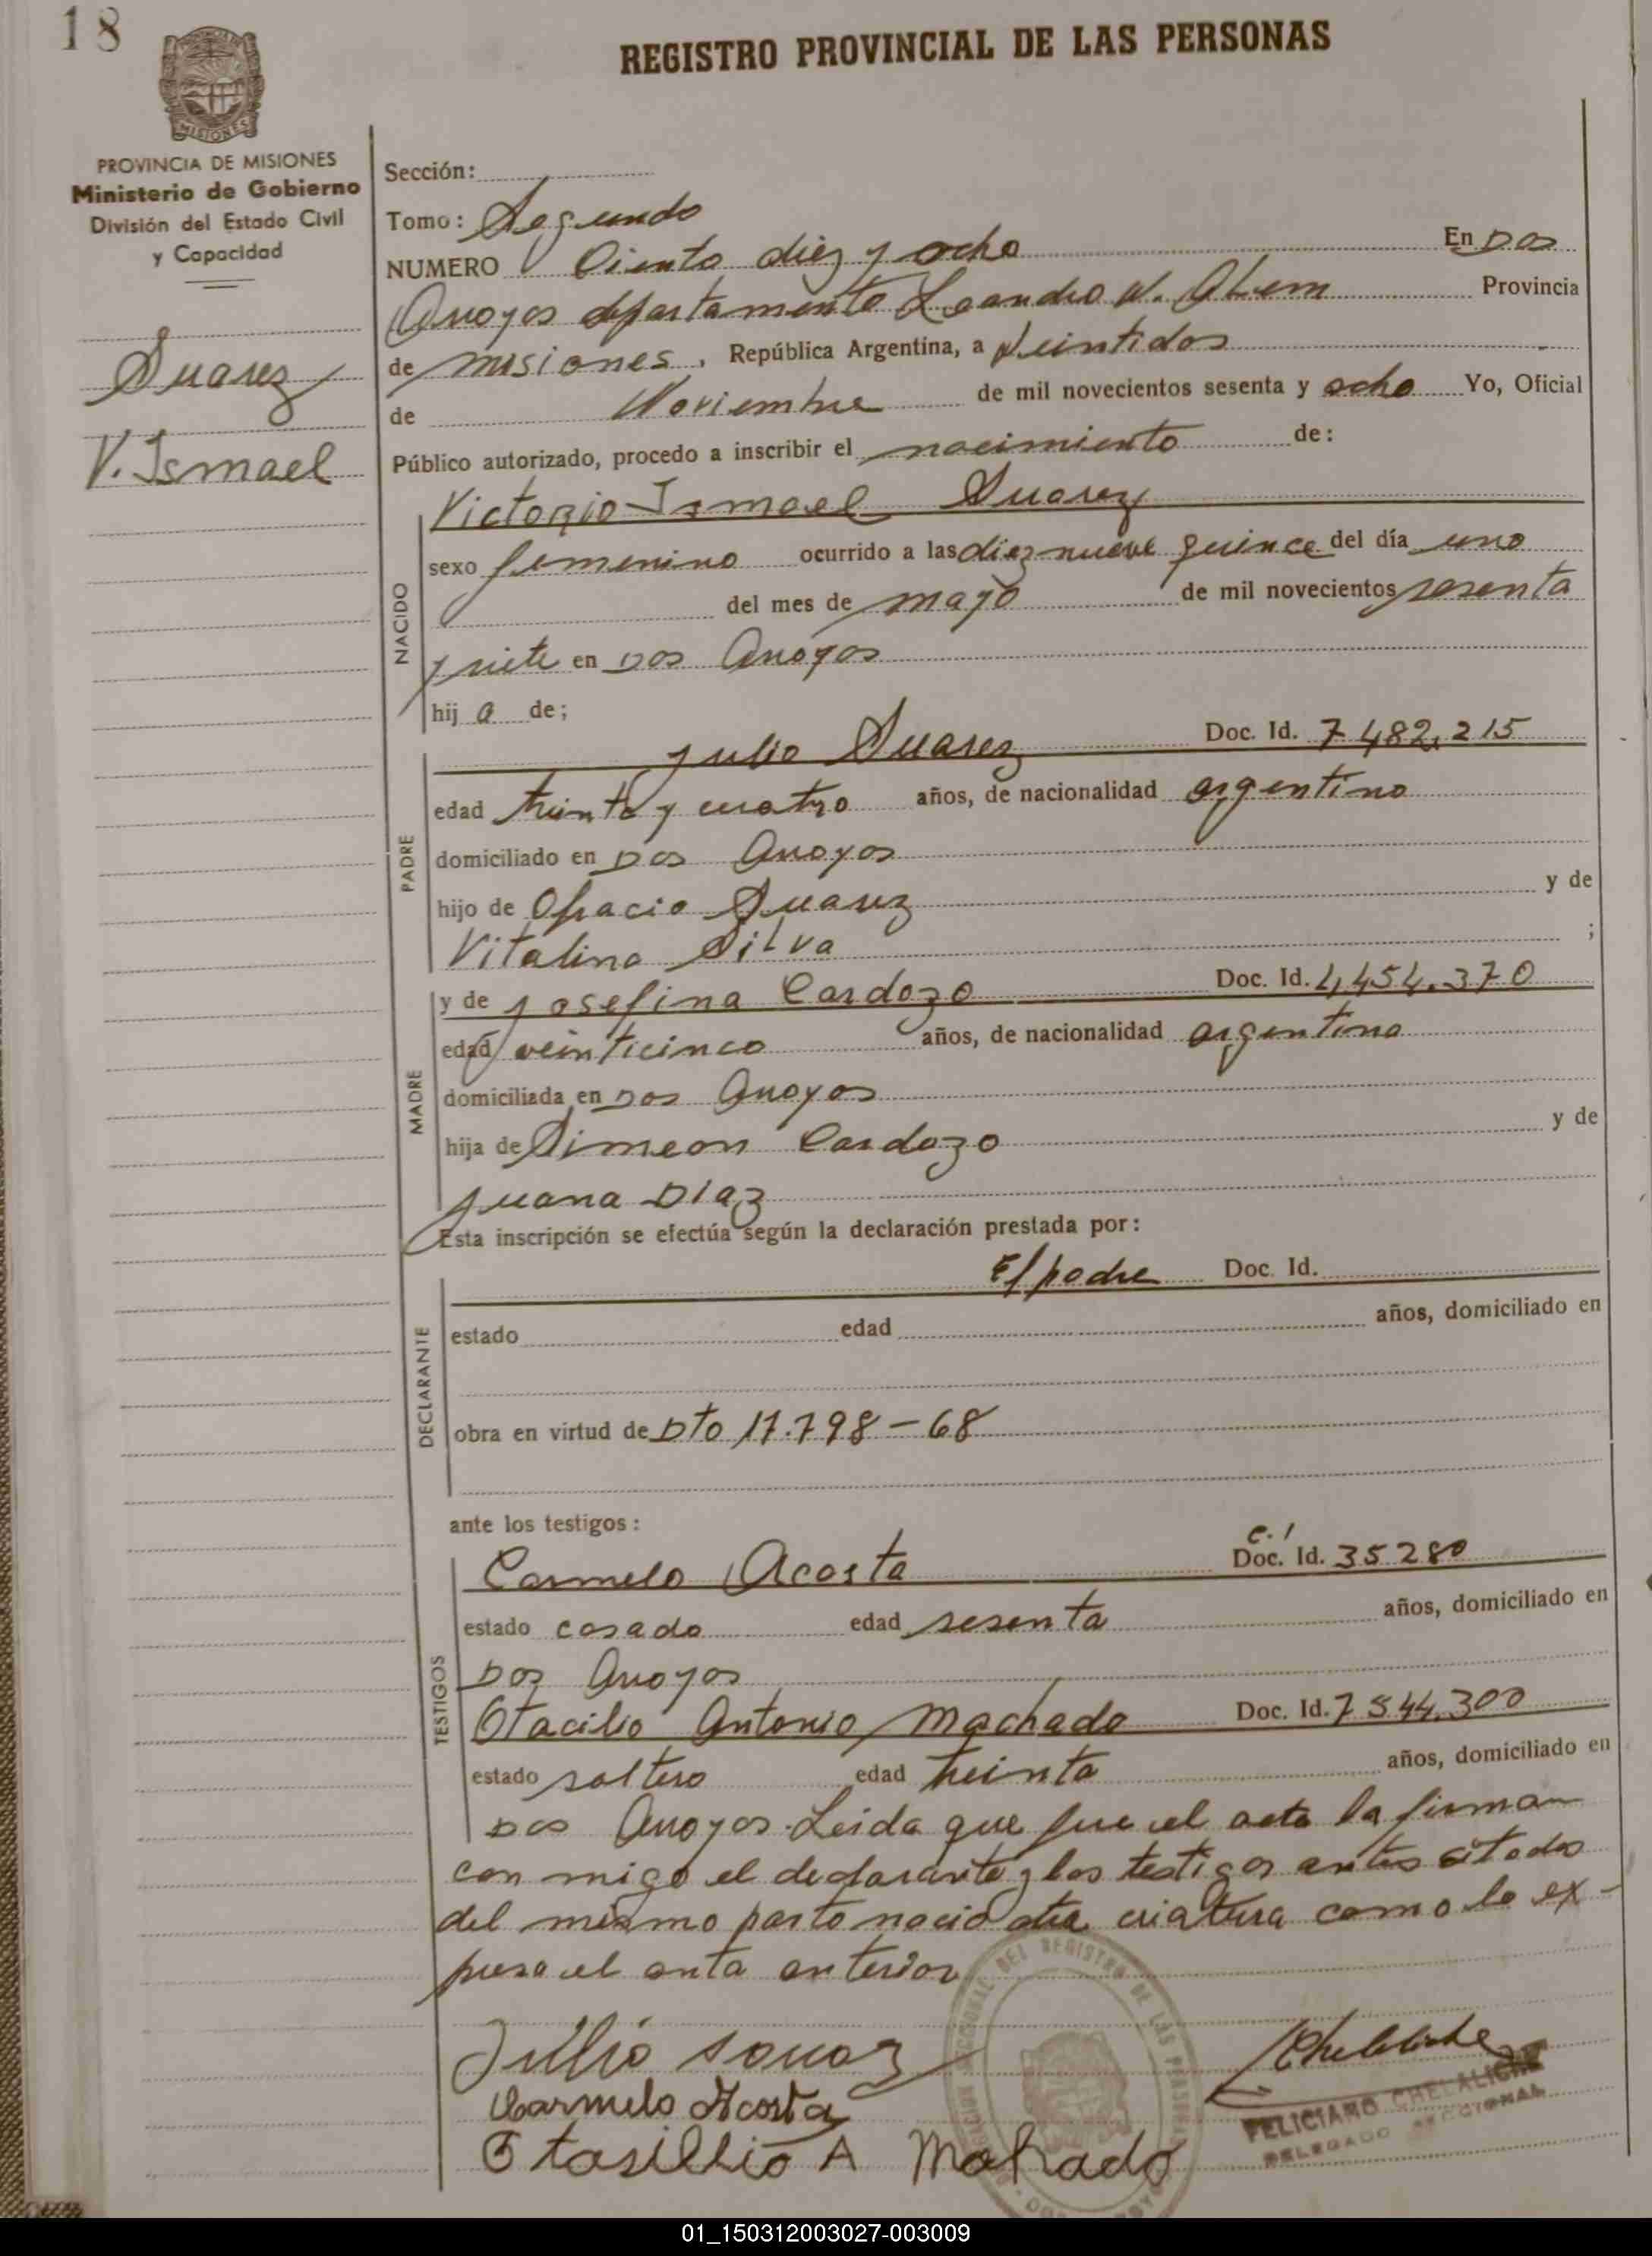 18
REGISTRO PROVINCIAL DE LAS PERSONAS
MISIONES
PROVINCIA DE MISIONES
Ministerio de Gobierno
División del Estado Civil
y Capacidad
Suarez
V. Ismael
Sección:
Tomo: Segundo
NUMERO Ciento diez y ocho En Dos
Arroyos departamento Leandro N. Alem Provincia
de misiones, República Argentina, a Veintidos
de Noviembre de mil novecientos sesenta y ocho Yo, Oficial
Público autorizado, procedo a inscribir el nacimiento de:
NACIDO
Victorio Ismael Suarez
sexo femenino ocurrido a las diez nueve quince del día uno
del mes de mayo de mil novecientos sesenta
y siete en Dos Arroyos
hij a de;
PADRE
Julio Suarez Doc. Id. 7 482.215
edad treinta y cuatro años, de nacionalidad argentino
domiciliado en Dos Arroyos
hijo de Ofracio Suarez y de
Vitalina Silva ;
MADRE
y de Josefina Cardozo Doc. Id. 4,454.370
edad veinticinco años, de nacionalidad argentina
domiciliada en Dos Arroyos
hija de Simeon Cardozo y de
Juana Diaz
Esta inscripción se efectúa según la declaración prestada por:
DECLARANTE
El padre Doc. Id.
estado edad años, domiciliado en
obra en virtud de Dto 17.798-68
ante los testigos:
TESTIGOS
Carmelo Acosta C.I Doc. Id. 35280
estado casado edad sesenta años, domiciliado en
Dos Arroyos
Otacilio Antonio Machado Doc. Id. 7 544.300
estado soltero edad treinta años, domiciliado en
Dos Arroyos. Leida que fue el acta la firman
con migo el declarante y los testigos antes citados
del mismo parto nacio otra criatura como lo ex-
presa el anta anterior
Julio Souaz
Carmelo Acosta
Otasillio A Mahado
Chelaliche
FELICIANO CHELALICHE
DELEGADO SECCIONAL
SECCIONAL DEL REGISTRO DE LAS PERSONAS
01_150312003027-003009